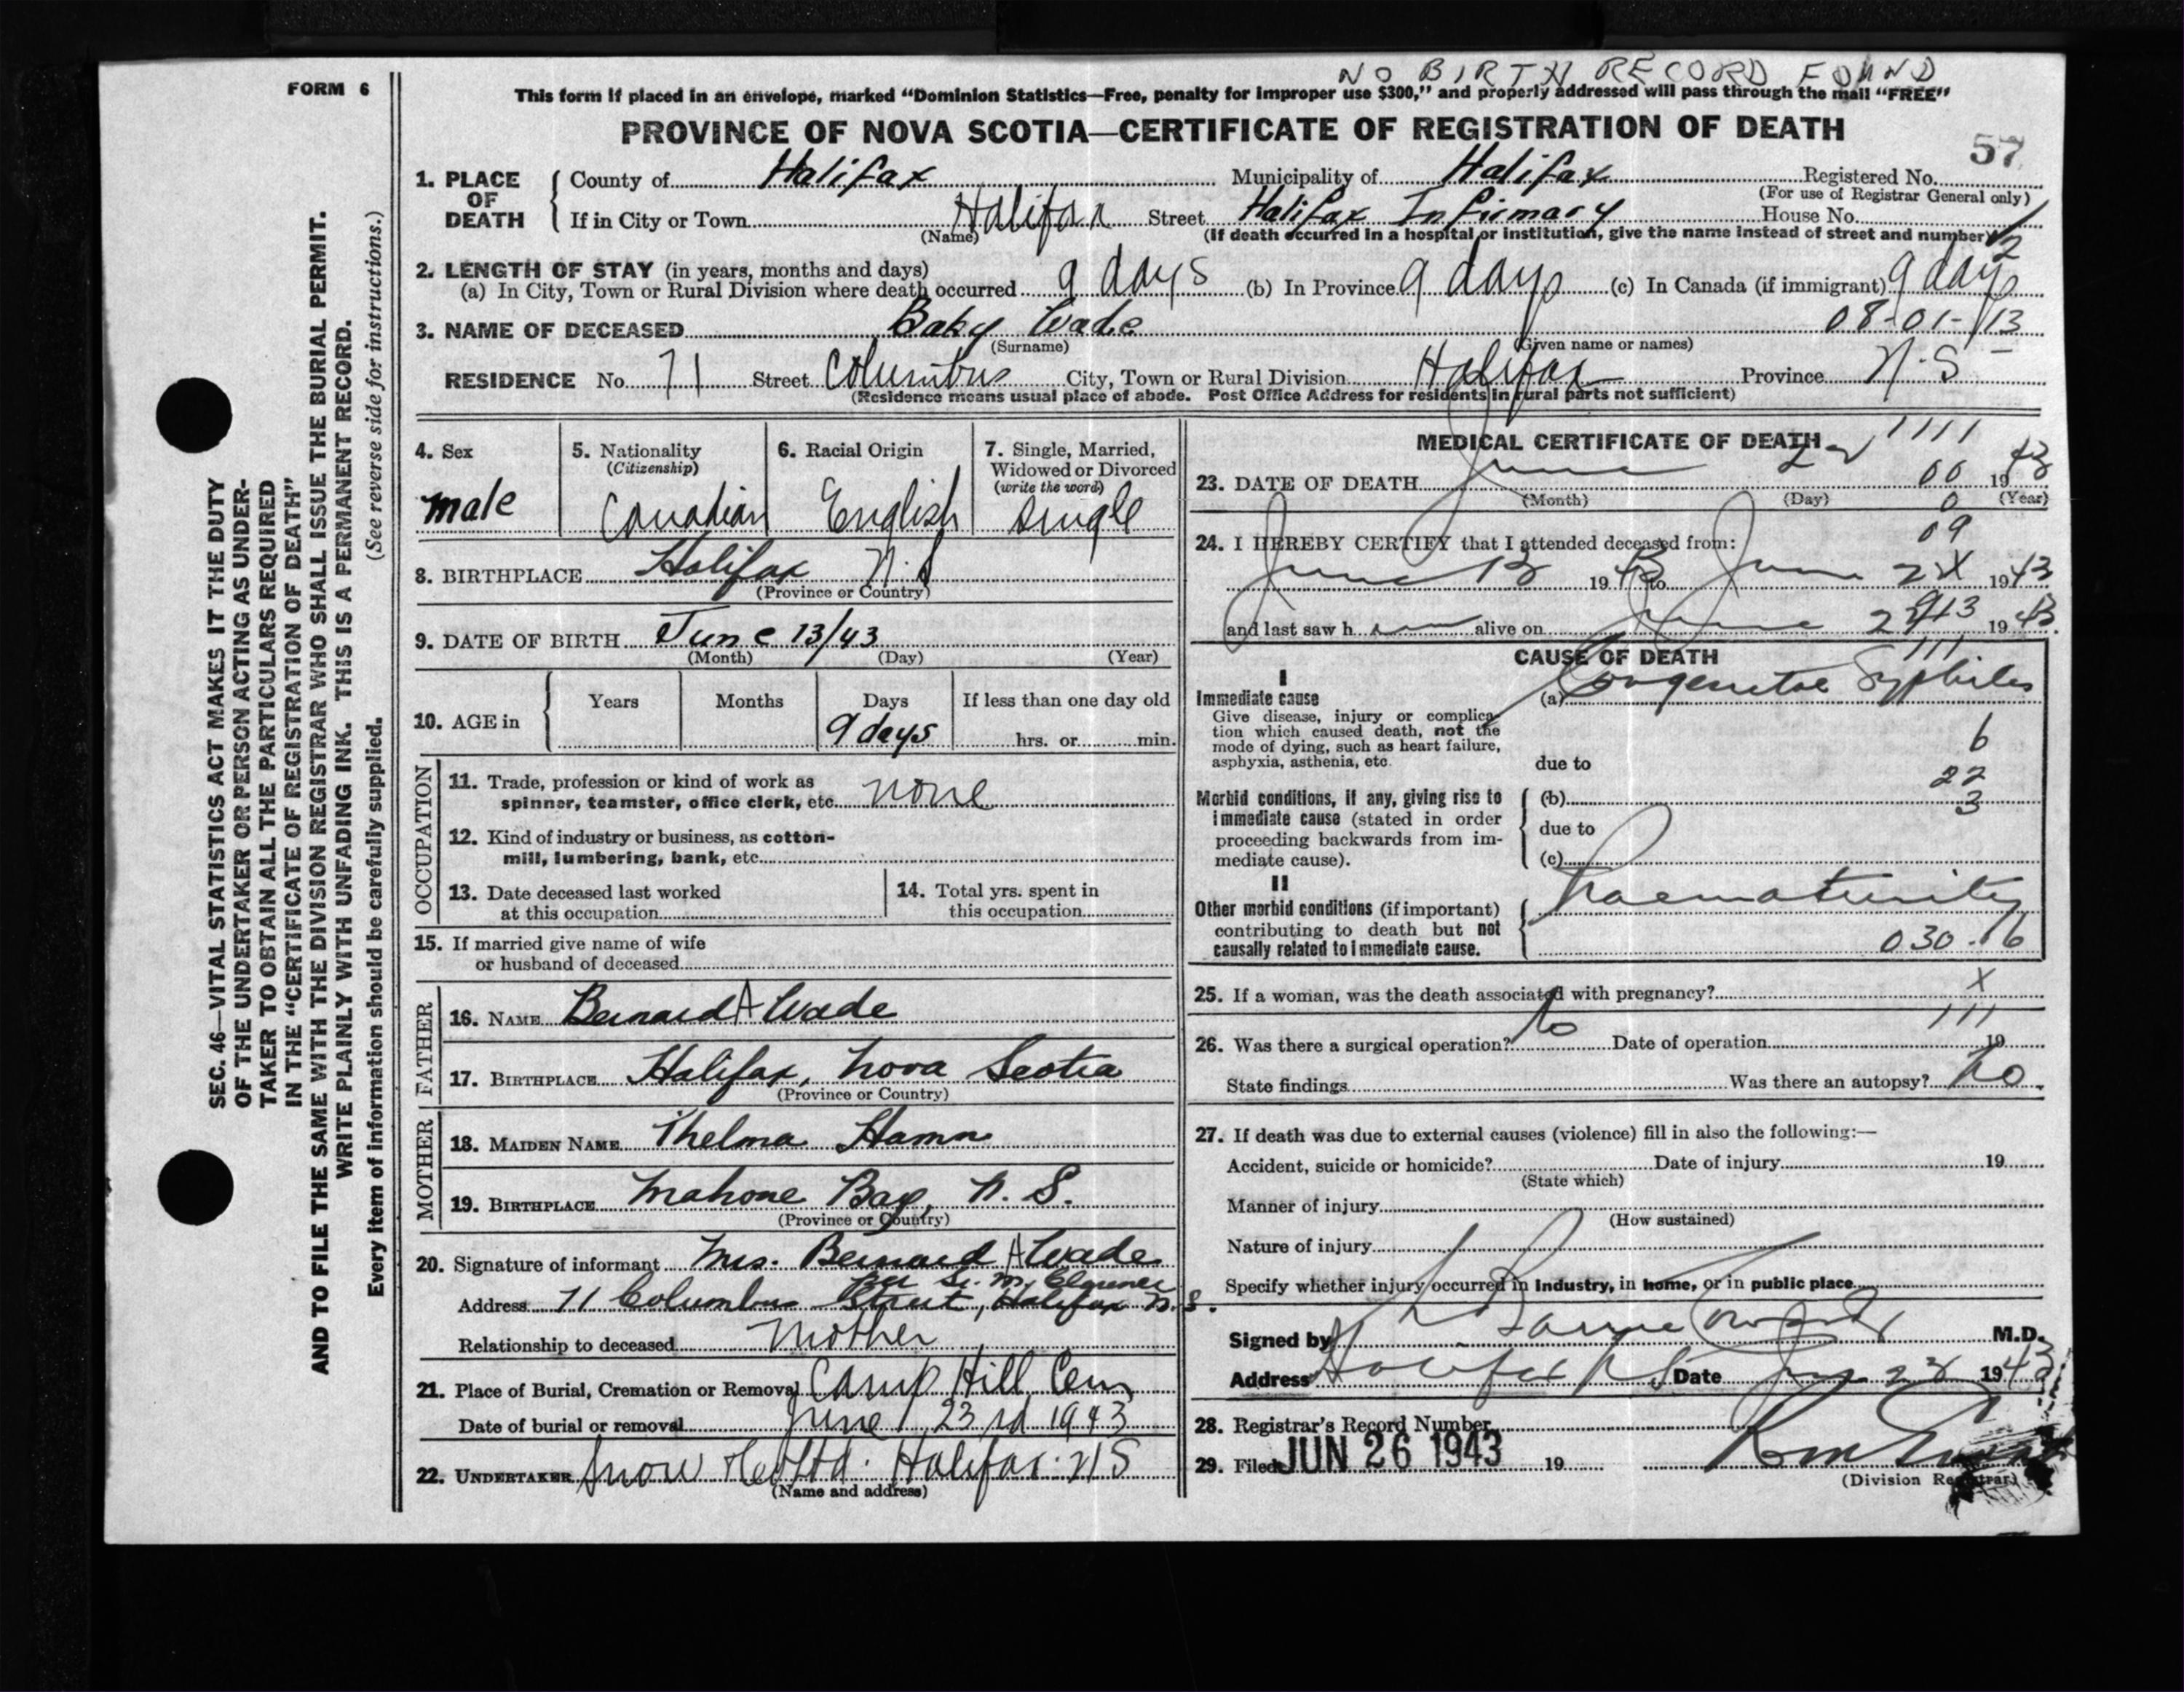 NO BIRTH RECORD FOUND
FORM 6
This form if placed in an envelope, marked "Dominion Statistics—Free, penalty for improper use $300," and properly addressed will pass through the mail "FREE"
PROVINCE OF NOVA SCOTIA—CERTIFICATE OF REGISTRATION OF DEATH
57
SEC. 46—VITAL STATISTICS ACT MAKES IT THE DUTY
OF THE UNDERTAKER OR PERSON ACTING AS UNDER-
TAKER TO OBTAIN ALL THE PARTICULARS REQUIRED
IN THE "CERTIFICATE OF REGISTRATION OF DEATH"
AND TO FILE THE SAME WITH THE DIVISION REGISTRAR WHO SHALL ISSUE THE BURIAL PERMIT.
WRITE PLAINLY WITH UNFADING INK. THIS IS A PERMANENT RECORD.
Every item of information should be carefully supplied. (See reverse side for instructions.)
1. PLACE OF DEATH County of Halifax Municipality of Halifax Registered No.
(For use of Registrar General only)
If in City or Town Halifax Street Halifax Infirmary House No.
(Name) (If death occurred in a hospital or institution, give the name instead of street and number)
2. LENGTH OF STAY (in years, months and days)
(a) In City, Town or Rural Division where death occurred 9 days (b) In Province 9 days (c) In Canada (if immigrant) 9 days
3. NAME OF DECEASED Baby Wade 08-01-113
(Surname) (Given name or names)
RESIDENCE No. 71 Street Columbus City, Town or Rural Division Halifax Province N.S
(Residence means usual place of abode. Post Office Address for residents in rural parts not sufficient)
4. Sex
male
5. Nationality
(Citizenship)
Canadian
6. Racial Origin
English
7. Single, Married,
Widowed or Divorced
(write the word)
single
8. BIRTHPLACE Halifax N.S
(Province or Country)
9. DATE OF BIRTH June 13/43
(Month) (Day) (Year)
10. AGE in Years Months Days If less than one day old
9 days hrs. or min.
OCCUPATION
11. Trade, profession or kind of work as
spinner, teamster, office clerk, etc. none
12. Kind of industry or business, as cotton-
mill, lumbering, bank, etc.
13. Date deceased last worked
at this occupation
14. Total yrs. spent in
this occupation
15. If married give name of wife
or husband of deceased
FATHER
16. NAME Bernard A Wade
17. BIRTHPLACE Halifax, Nova Scotia
(Province or Country)
MOTHER
18. MAIDEN NAME Thelma Hamm
19. BIRTHPLACE Mahone Bay, N. S.
(Province or Country)
20. Signature of informant Mrs. Bernard A Wade
Per Sr. M.
Address 71 Columbus Street, Halifax N.S.
Relationship to deceased Mother
21. Place of Burial, Cremation or Removal Camp Hill Cem
Date of burial or removal June 23rd 1943
22. UNDERTAKER Snow & Co Ltd. Halifax. NS
(Name and address)
MEDICAL CERTIFICATE OF DEATH
1111
23. DATE OF DEATH June 22 00 1943
(Month) (Day) (Year)
0
09
24. I HEREBY CERTIFY that I attended deceased from:
June 13 1943 to June 22 1943
and last saw h im alive on June 1943
CAUSE OF DEATH
111
I
Immediate cause
Give disease, injury or complica-
tion which caused death, not the
mode of dying, such as heart failure,
asphyxia, asthenia, etc.
(a) Congenital Syphilis
6
due to
22
Morbid conditions, if any, giving rise to
immediate cause (stated in order
proceeding backwards from im-
mediate cause).
(b) 3
due to
(c)
II
Other morbid conditions (if important)
contributing to death but not
causally related to immediate cause.
Praematurity
030.16
25. If a woman, was the death associated with pregnancy? X
111
26. Was there a surgical operation? No Date of operation 19
State findings Was there an autopsy? No.
27. If death was due to external causes (violence) fill in also the following:—
Accident, suicide or homicide? Date of injury 19
(State which)
Manner of injury
(How sustained)
Nature of injury
Specify whether injury occurred in industry, in home, or in public place
Signed by M.D.
Address Halifax NS Date June 1943
28. Registrar's Record Number
29. Filed JUN 26 1943 19
(Division Registrar)